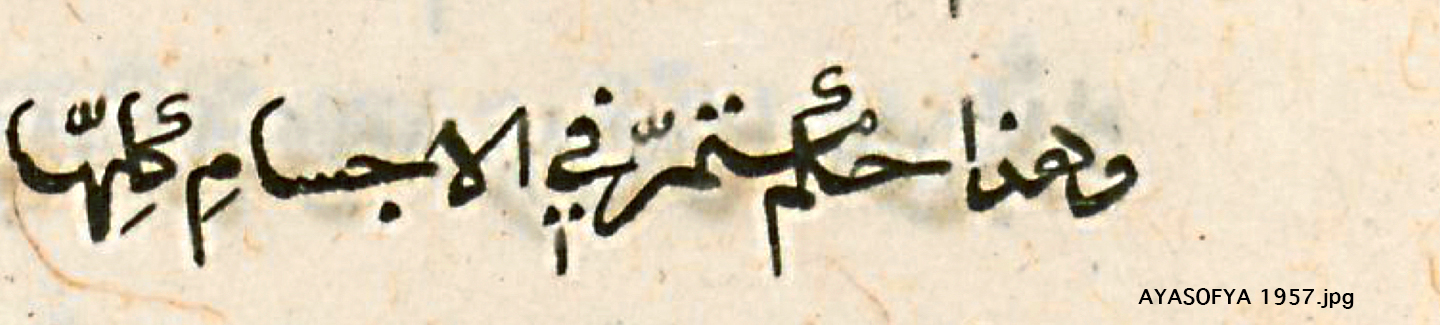 وهذا حكم مستمرّ في الاجسامِ كلِّها
AYASOFYA 1957.jpg